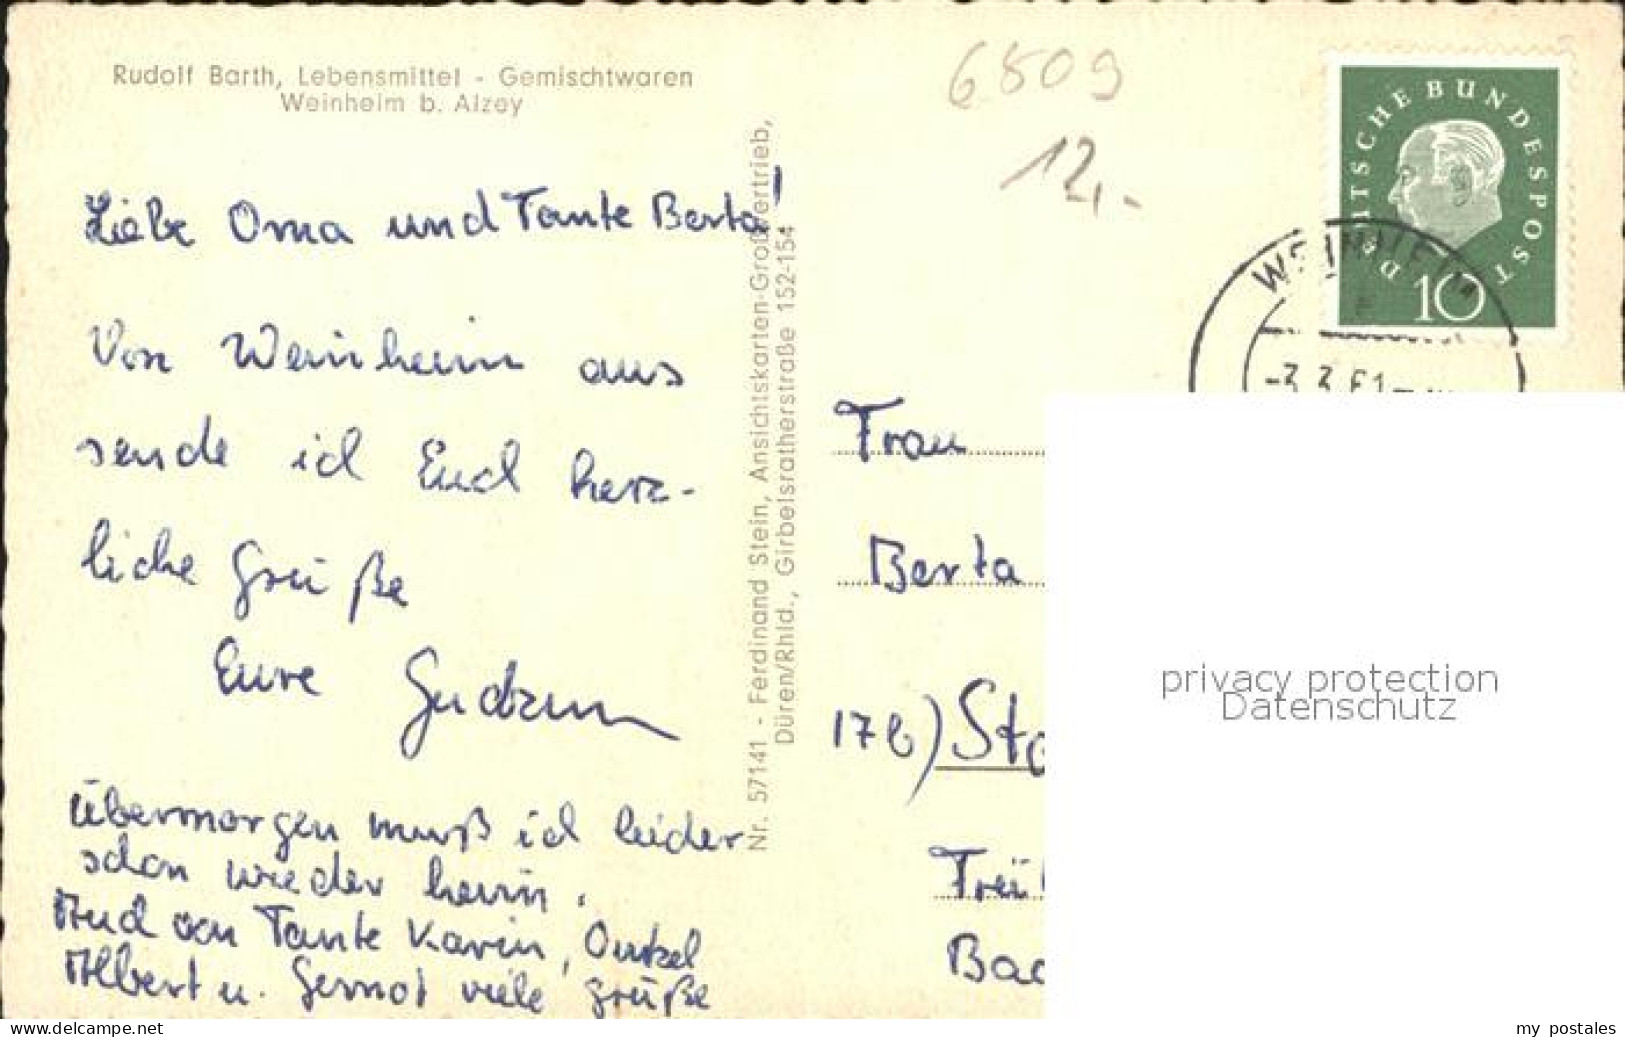 Rudolf Barth, Lebensmittel - Gemischtwaren
Weinheim b. Alzey
Liebe Oma und Tante Berta!
Von Weinheim aus
sende ich Euch herz-
liche Grüße
Eure Gudrun
Übermorgen muß ich leider
schon wieder heim.
Auch von Tante Karin, Onkel
Albert u. Gernot viele Grüße
Nr. 57141 - Ferdinand Stein, Ansichtskarten-Großvertrieb,
Düren/Rhld., Girbelsratherstraße 152-154
6809
12,-
DEUTSCHE BUNDESPOST
10
WEINHEIM
-3.3.61-
Frau
Berta
17b) Sto
Frü
Bad
privacy protection
Datenschutz
https://www.delcampe.net
my postales